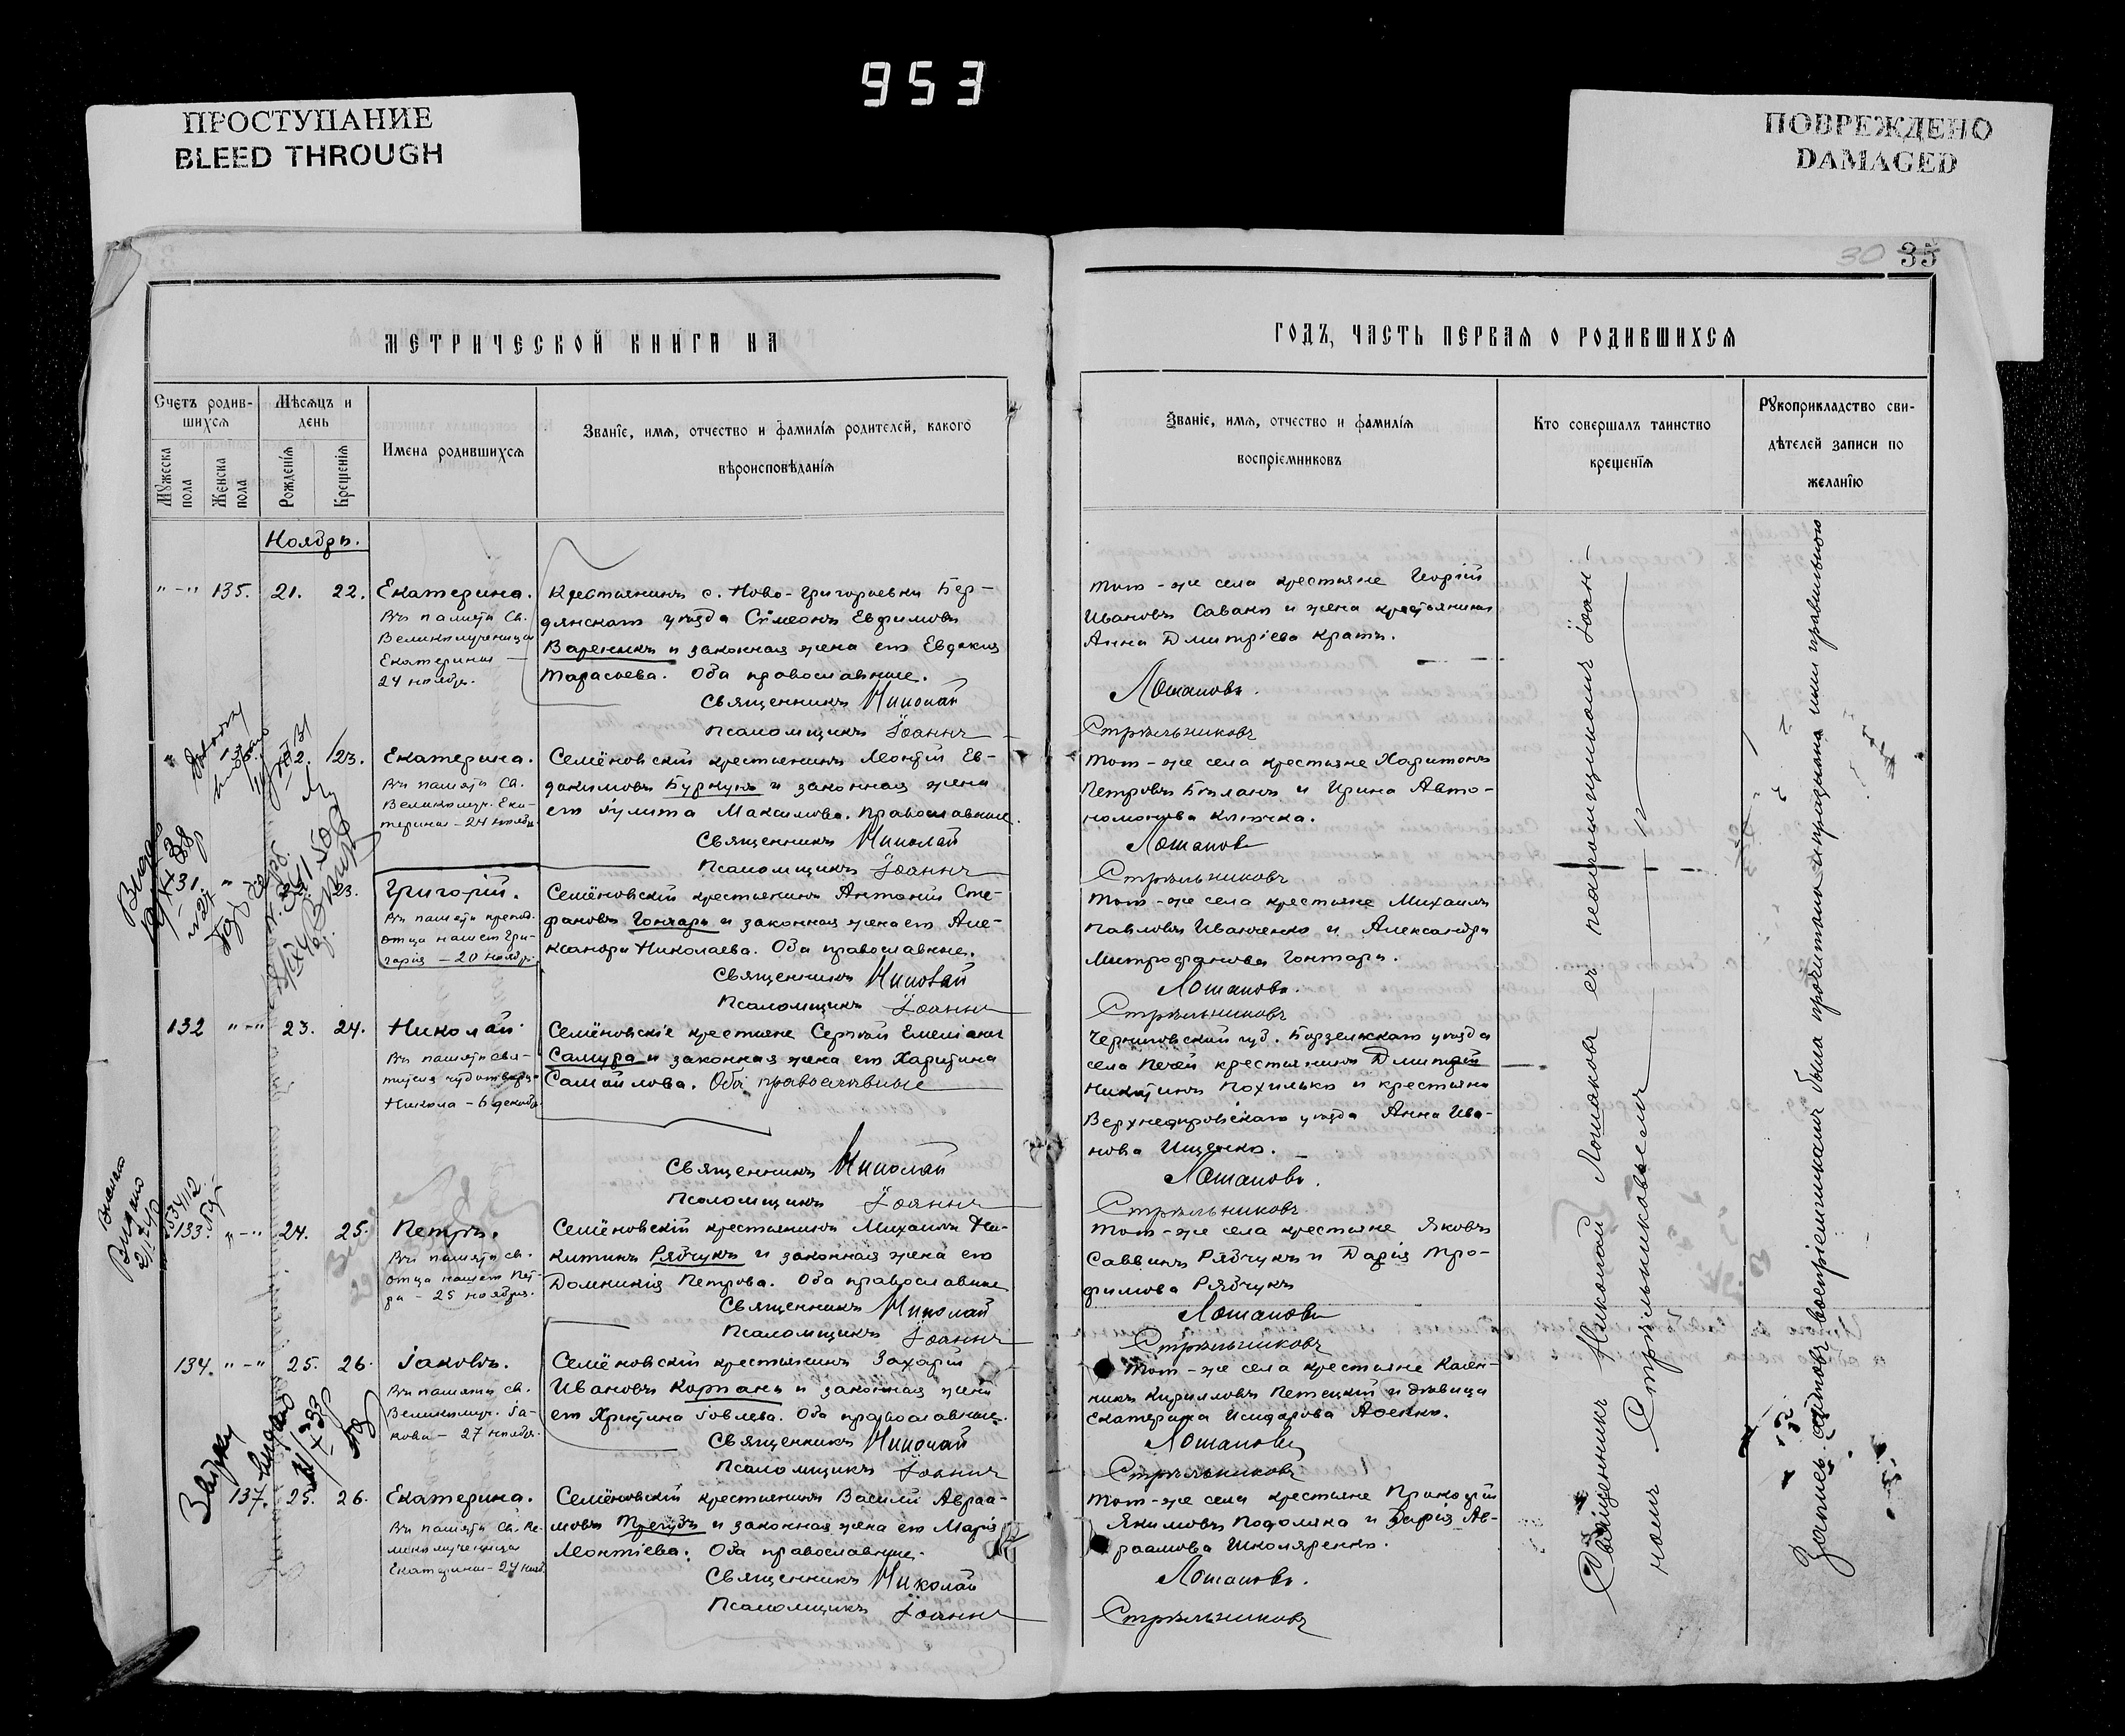 953
ПРОСТУПАНИЕ
BLEED THROUGH
ПОВРЕЖДЕНО
DAMAGED
30 35
МЕТРИЧЕСКОЙ КНИГИ НА
ГОДЪ, ЧАСТЬ ПЕРВАЯ О РОДИВШИХСЯ
Счетъ родив-
шихся
Мужеска пола
Женска пола
Мѣсяцъ и
день
Рожденія
Крещенія
Имена родившихся
Званіе, имя, отчество и фамилія родителей, какого
вѣроисповѣданія
Званіе, имя, отчество и фамилія
воспріемниковъ
Кто совершалъ таинство
крещенія
Рукоприкладство сви-
дѣтелей записи по
желанію
Ноябрь.
" - " 135. 21. 22. Екатерина.
Въ память Св.
Великомученицы
Екатерины
24 ноября.
Крестьянинъ с. Ново-Григорьевки Бер-
дянскаго уѣзда Сѵмеонъ Евфимовъ
Вареникъ и законная жена его Евдокия
Тарасьева. Оба православные.
Священникъ Николай
Псаломщикъ Іоаннъ
Того-же села крестьяне Георгій
Ивановъ Саванъ и жена крестьянина
Анна Дмитріева Кратъ.
Ломаковъ.
Стрѣльниковъ
136. 22. 23. Екатерина.
Въ память Св.
Великомуч. Ека-
терины - 24 ноября
Семёновскій крестьянинъ Леонтій Ев-
докимовъ Буркунъ и законная жена
его Іулита Максимова. Православные.
Священникъ Николай
Псаломщикъ Іоаннъ
Того-же села крестьяне Харитонъ
Петровъ Биланъ и Ирина Авто-
номова Клячка.
Ломаковъ
Стрѣльниковъ
131. " 23. Григорій.
Въ память препод.
отца нашего Гри-
горія - 20 ноября.
Семёновскій крестьянинъ Антоній Сте-
фановъ Гончаръ и законная жена его Але-
ксандра Николаева. Оба православные.
Священникъ Николай
Псаломщикъ Іоаннъ
Того-же села крестьяне Михаилъ
Павловъ Иванченко и Александра
Митрофанова Гонтарь.
Ломаковъ.
Стрѣльниковъ
132 " - " 23. 24. Николай
Въ память свя-
тителя чудотворца
Никола - 6 декабр.
Семёновскіе крестьяне Сергѣй Емеліановъ
Самура и законная жена его Харитина
Самойлова. Оба православные
Священникъ Николай
Псаломщикъ Іоаннъ
Черниговской губ. Борзенскаго уѣзда
села Печей крестьянинъ Дмитрій
Никитинъ Похилько и крестьянка
Верхнеднѣпровскаго уѣзда Анна Ива-
нова Ищенко.
Ломаковъ.
Стрѣльниковъ.
133. " - " 24. 25. Петръ.
Въ память св.
отца нашего Пет-
ра - 25 ноября.
Семёновскій крестьянинъ Михаилъ Ни-
китинъ Рябчукъ и законная жена его
Домникія Петрова. Оба православные
Священникъ Николай
Псаломщикъ Іоаннъ
Того-же села крестьяне Яковъ
Саввинъ Рябчукъ и Дарія Тро-
фимова Рябчукъ
Ломаковъ
Стрѣльниковъ
134. " - " 25. 26. Іаковъ.
Въ память св.
Великомуч. Іа-
кова - 27 ноября.
Семёновскій крестьянинъ Захарій
Ивановъ Корпань и законная жена
его Христина Іовлева. Оба православные.
Священникъ Николай
Псаломщикъ Іоаннъ
Того-же села крестьяне Кален-
никъ Кирилловъ Петецкій и дѣвица
Екатерина Исидорова
Ломаковъ
Стрѣльниковъ
137. 25. 26. Екатерина.
Въ память Св. Ве-
ликомученицы
Екатерины - 24 нояб.
Семёновскій крестьянинъ Василій Авраа-
мовъ Трегубъ и законная жена его Марія
Леонтіева. Оба православные.
Священникъ Николай
Псаломщикъ Іоаннъ
Того-же села крестьяне Прокофій
Якимовъ Подоляка и Дарія Ав-
раамова Школяренко.
Ломаковъ.
Стрѣльниковъ
Священникъ Николай Ломаковъ съ псаломщикомъ Іоан-
номъ Стрѣльниковымъ
воспріемниками была прочитана и признана ими правильною